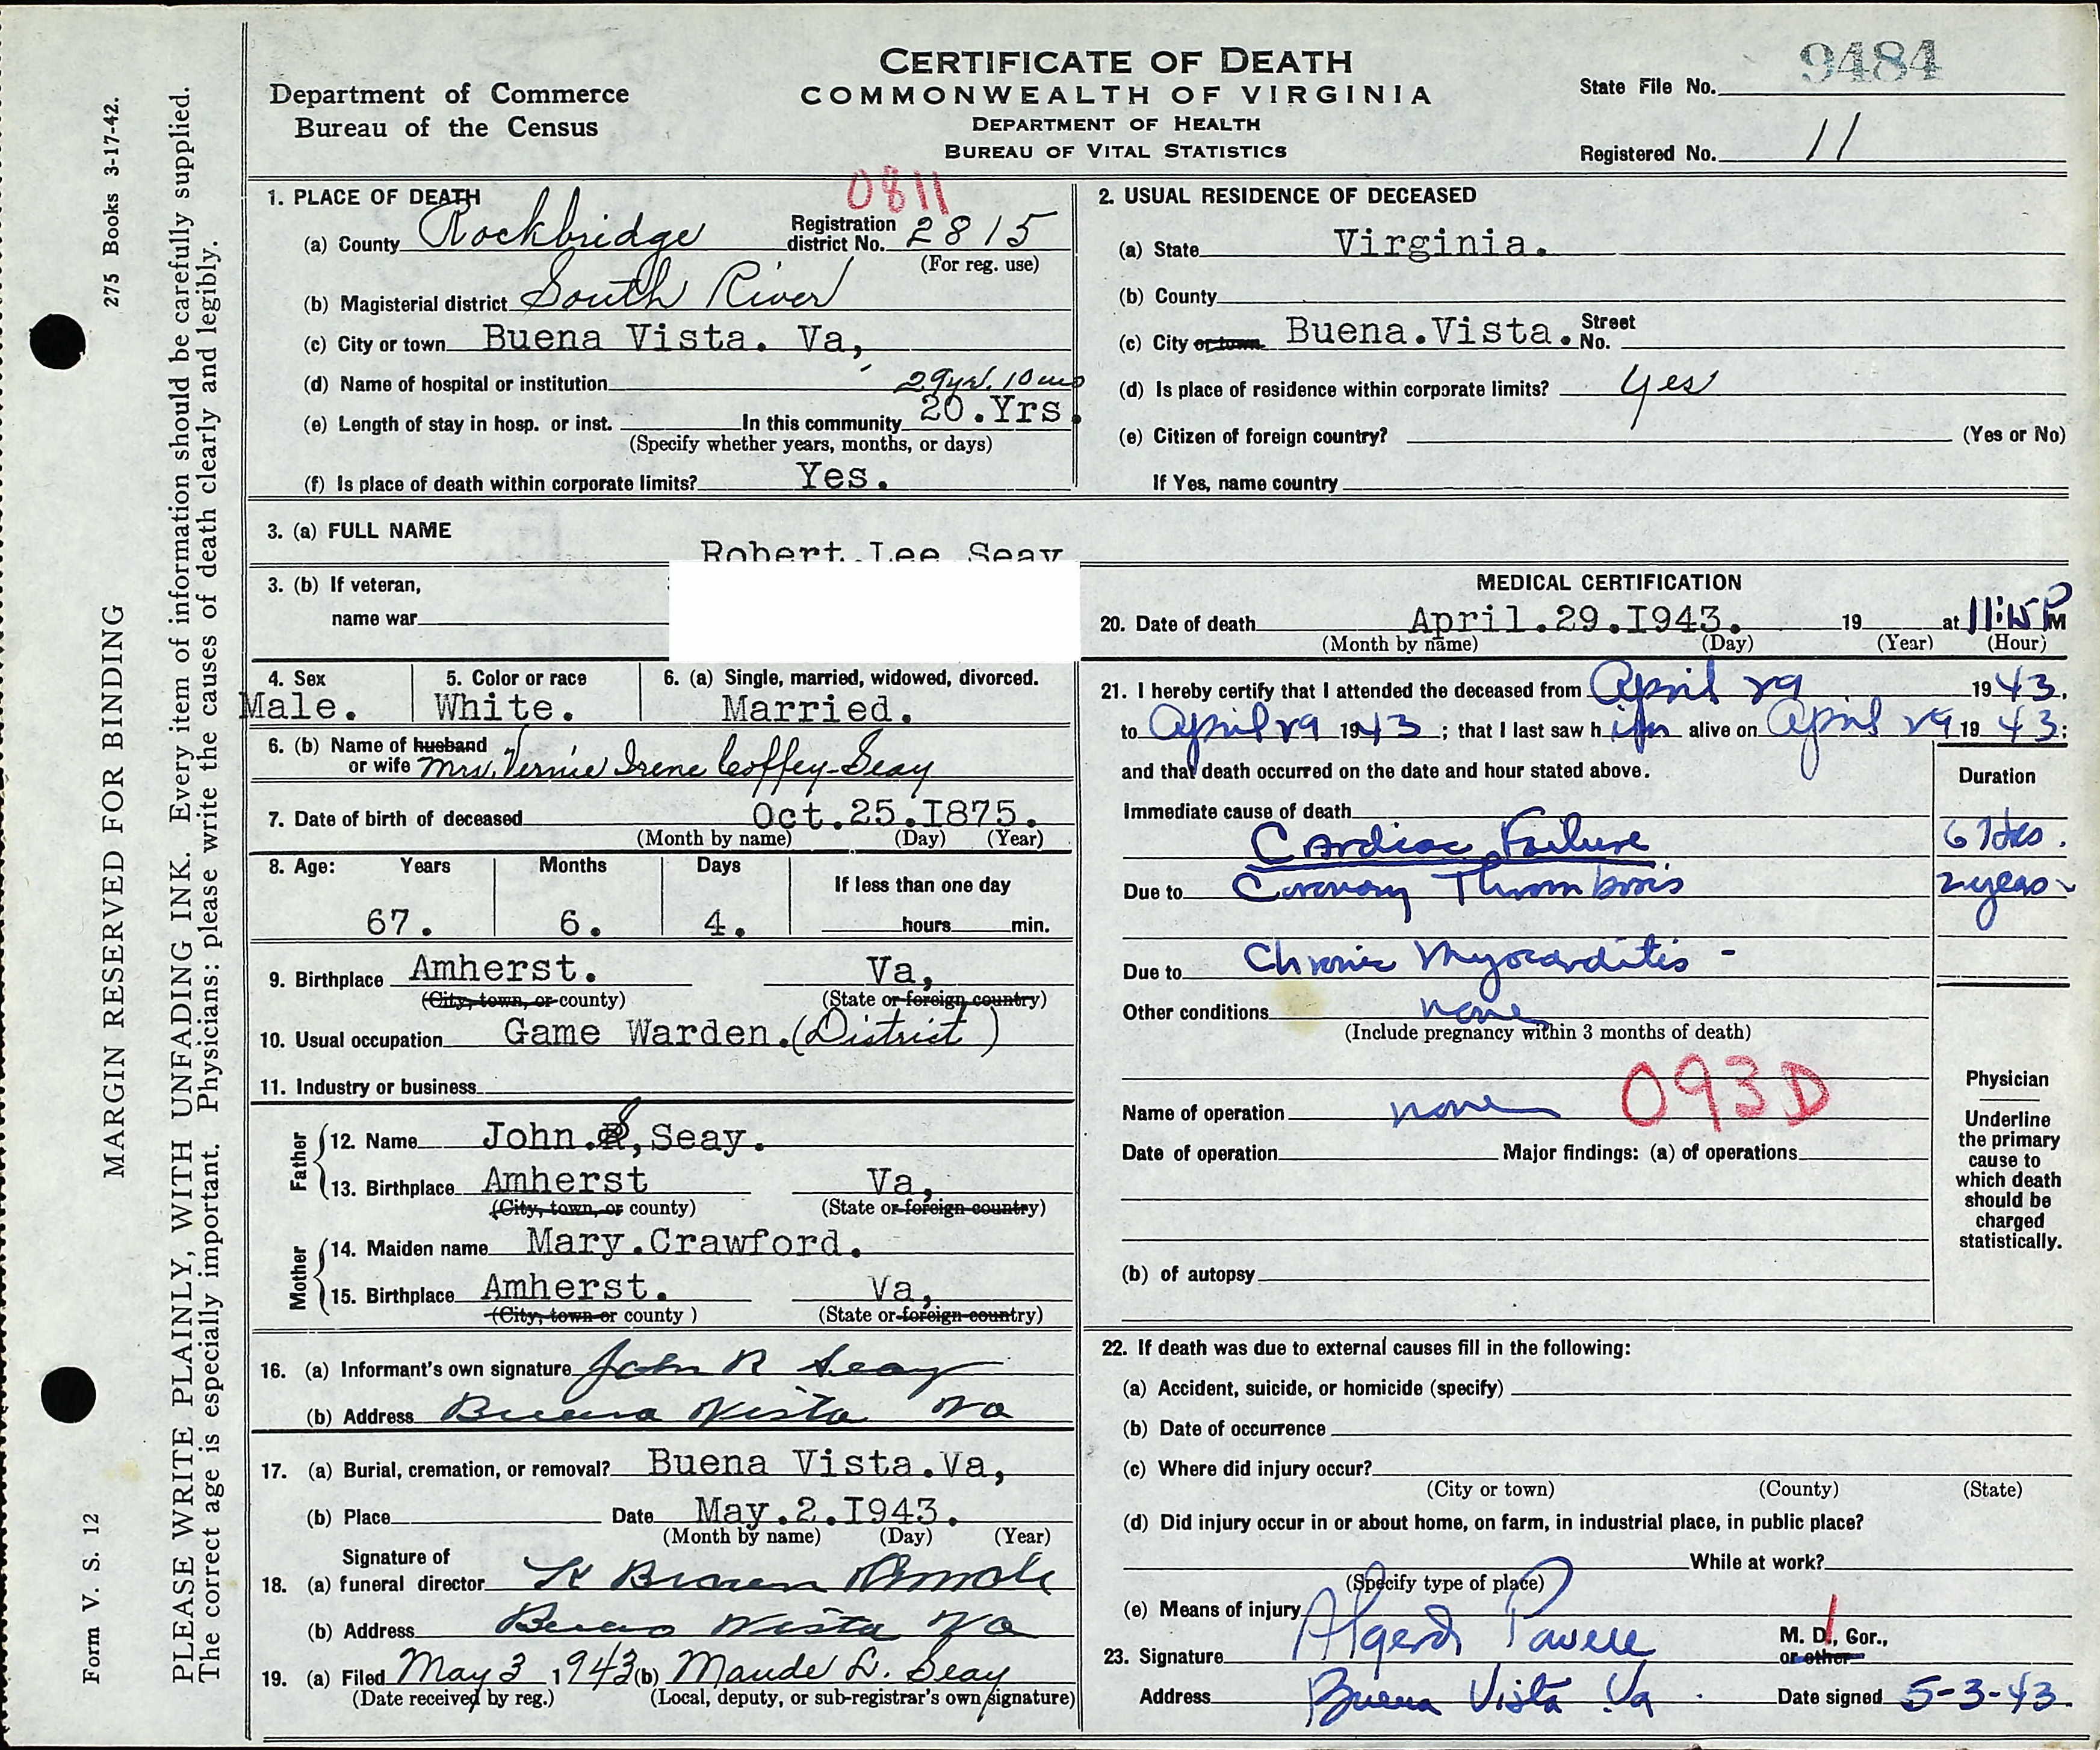 CERTIFICATE OF DEATH
COMMONWEALTH OF VIRGINIA
DEPARTMENT OF HEALTH
BUREAU OF VITAL STATISTICS
Department of Commerce
Bureau of the Census
State File No. 9484
Registered No. 11
275 Books 3-17-42.
MARGIN RESERVED FOR BINDING
Form V. S. 12
PLEASE WRITE PLAINLY, WITH UNFADING INK. Every item of information should be carefully supplied.
The correct age is especially important. Physicians: please write the causes of death clearly and legibly.
1. PLACE OF DEATH 0811
(a) County Rockbridge Registration district No. 2815
(For reg. use)
(b) Magisterial district South River
(c) City or town Buena Vista. Va,
(d) Name of hospital or institution 29 yrs. 10 mos
(e) Length of stay in hosp. or inst. In this community 20.Yrs.
(Specify whether years, months, or days)
(f) Is place of death within corporate limits? Yes.
2. USUAL RESIDENCE OF DECEASED
(a) State Virginia.
(b) County
(c) City or town Buena.Vista. Street No.
(d) Is place of residence within corporate limits? yes
(e) Citizen of foreign country? (Yes or No)
If Yes, name country
3. (a) FULL NAME Robert Lee Seay
3. (b) If veteran,
name war
4. Sex Male.
5. Color or race White.
6. (a) Single, married, widowed, divorced. Married.
6. (b) Name of husband
or wife Mrs. Vernie Irene Coffey-Seay
7. Date of birth of deceased Oct.25.I875.
(Month by name) (Day) (Year)
8. Age: Years Months Days If less than one day
67. 6. 4. hours min.
9. Birthplace Amherst. Va,
(City, town, or county) (State or foreign country)
10. Usual occupation Game Warden. (District)
11. Industry or business
Father
12. Name John. S, Seay.
13. Birthplace Amherst Va,
(City, town, or county) (State or foreign country)
Mother
14. Maiden name Mary.Crawford.
15. Birthplace Amherst. Va,
(City, town or county ) (State or foreign country)
16. (a) Informant's own signature John R Seay
(b) Address Buena Vista Va
17. (a) Burial, cremation, or removal? Buena Vista.Va,
(b) Place Date May.2.I943.
(Month by name) (Day) (Year)
Signature of
18. (a) funeral director Brown
(b) Address Buena Vista Va
19. (a) Filed May 3 1943 (b) Maude L. Seay
(Date received by reg.) (Local, deputy, or sub-registrar's own signature)
MEDICAL CERTIFICATION
20. Date of death April.29.I943. 19 at 11:15 P M
(Month by name) (Day) (Year) (Hour)
21. I hereby certify that I attended the deceased from April 29 1943,
to April 29 1943; that I last saw him alive on April 29 1943:
and that death occurred on the date and hour stated above.
Duration
Immediate cause of death
Cardiac Failure 6 Hrs.
Due to Coronary Thrombosis 2 years
Due to Chronic Myocarditis -
Other conditions none
(Include pregnancy within 3 months of death)
093D
Name of operation none
Date of operation Major findings: (a) of operations
(b) of autopsy
Physician
Underline
the primary
cause to
which death
should be
charged
statistically.
22. If death was due to external causes fill in the following:
(a) Accident, suicide, or homicide (specify)
(b) Date of occurrence
(c) Where did injury occur?
(City or town) (County) (State)
(d) Did injury occur in or about home, on farm, in industrial place, in public place?
While at work?
(Specify type of place)
(e) Means of injury
23. Signature M. D., Cor.,
or other
Address Buena Vista Va. Date signed 5-3-43.